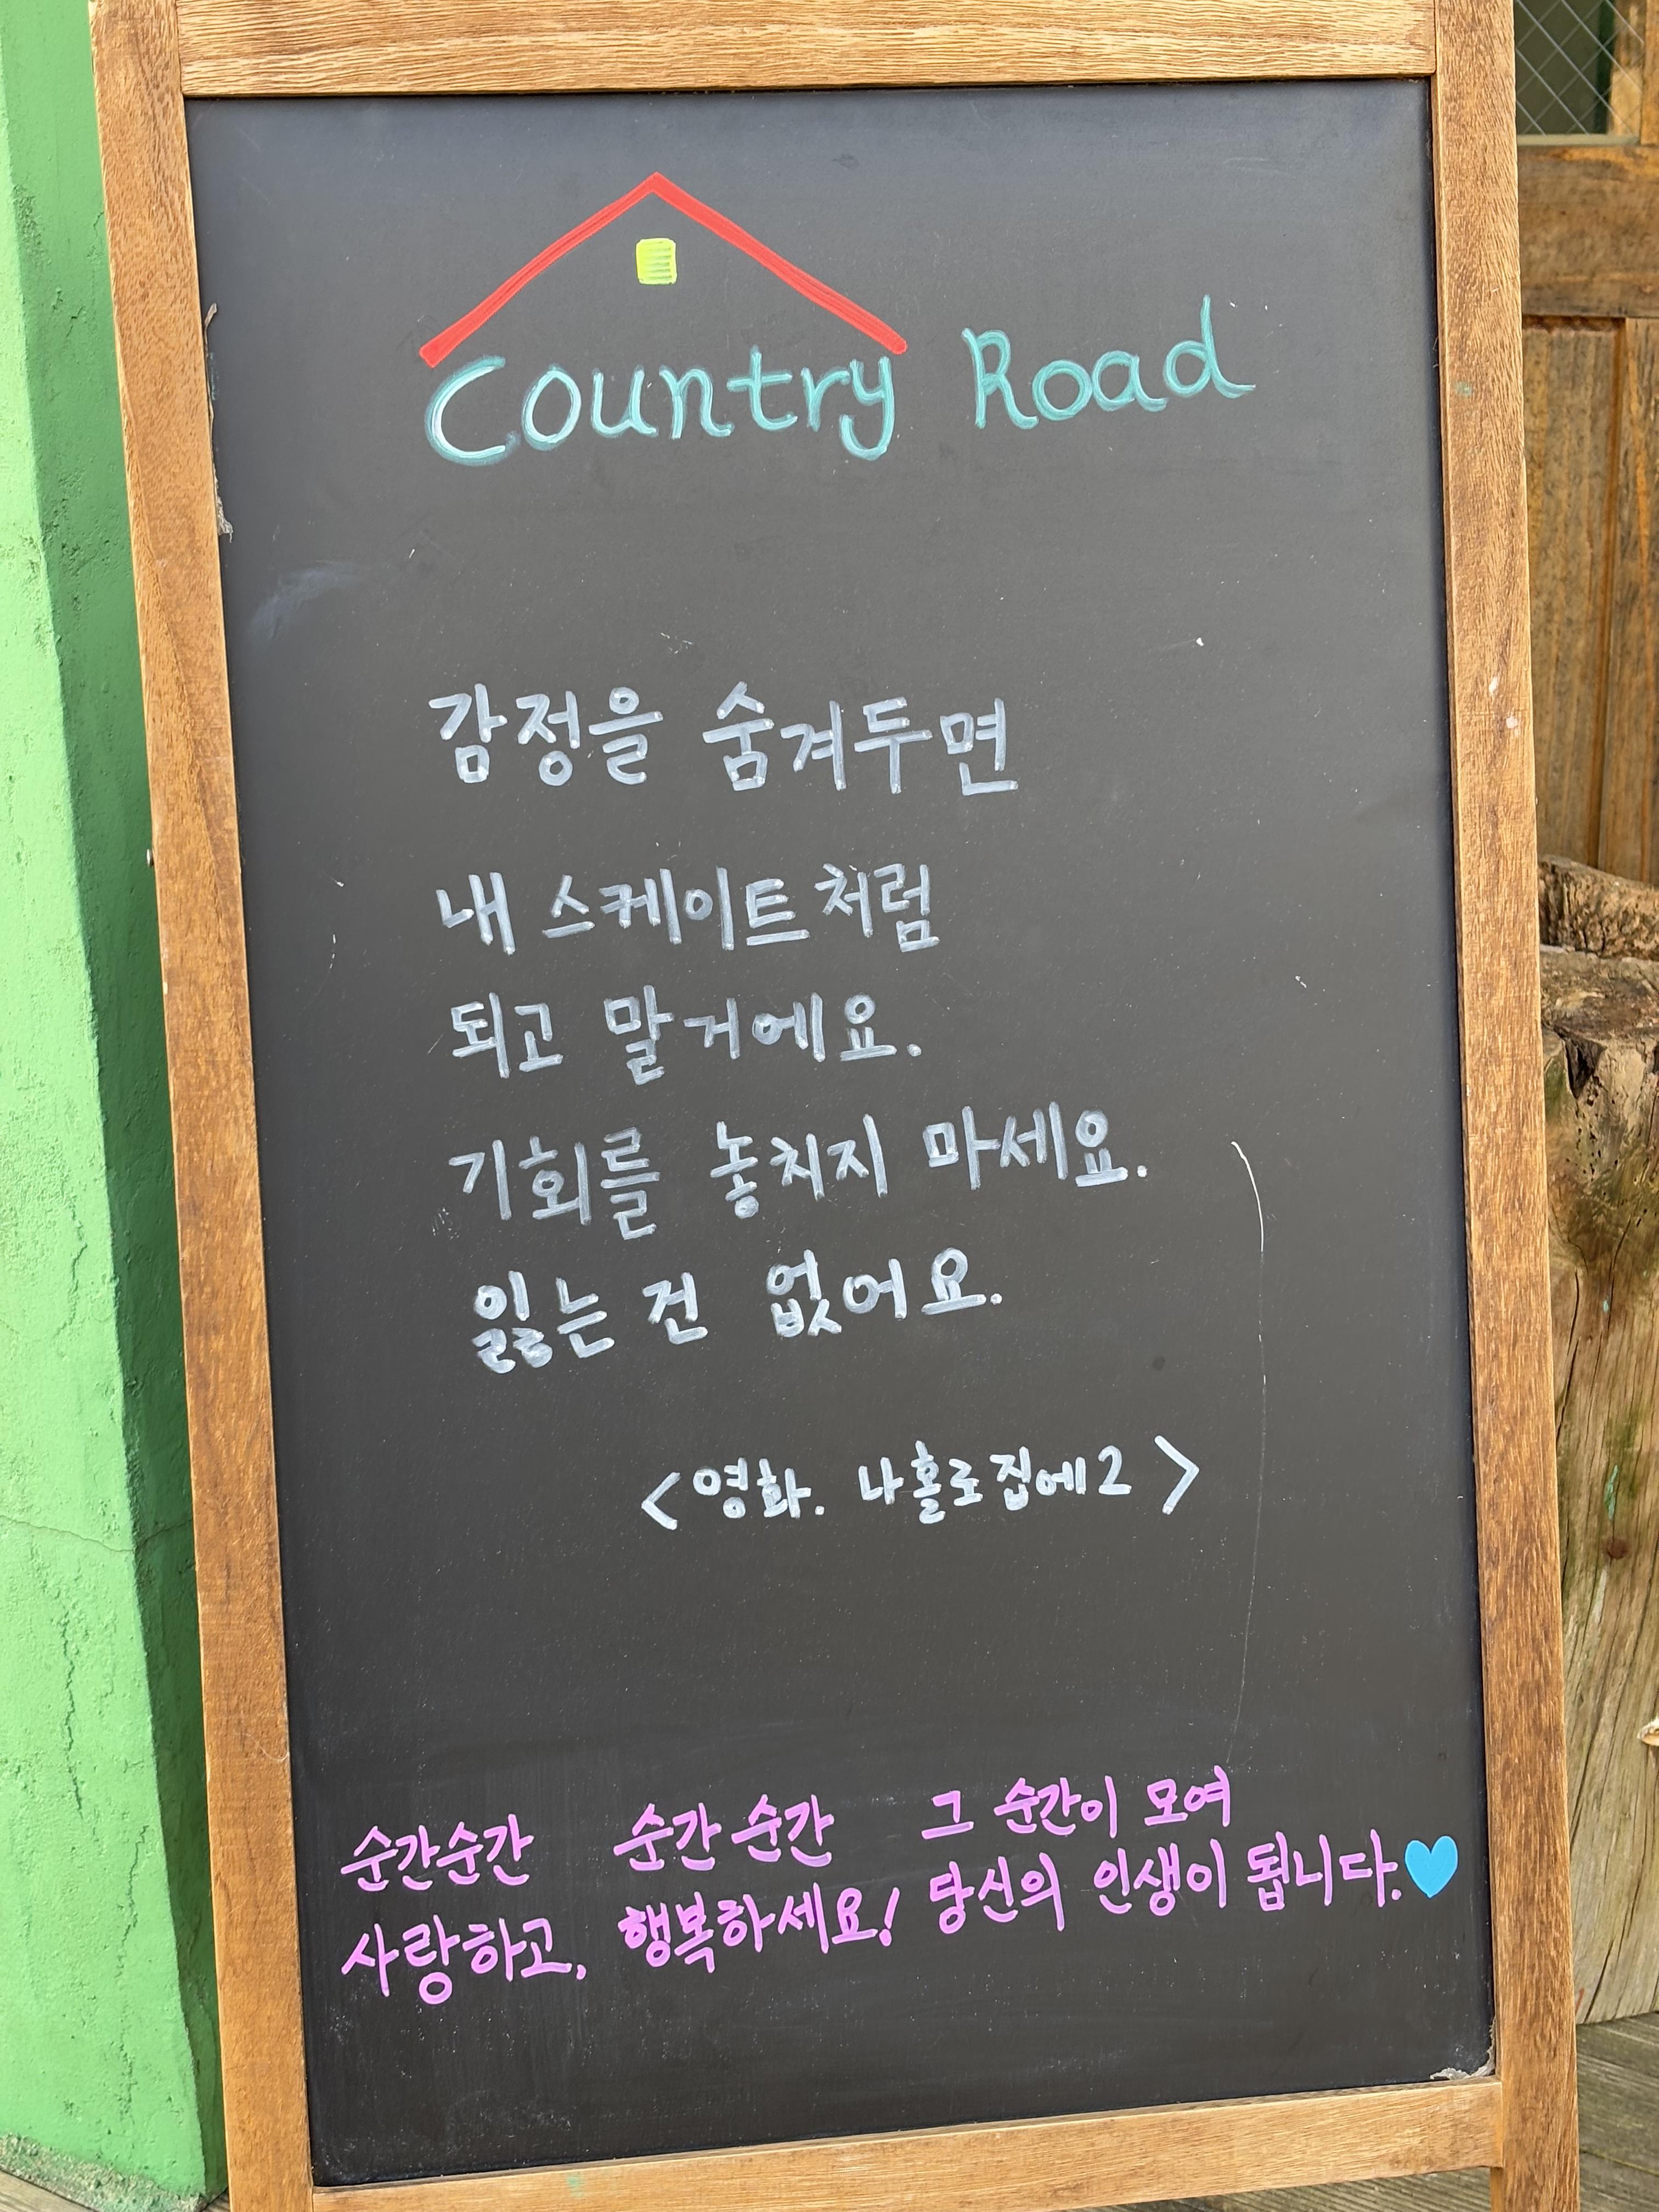 Country Road
감정을 숨겨두면
내 스케이트처럼
되고 말거에요.
기회를 놓치지 마세요.
잃는 건 없어요.
<영화. 나홀로집에2>
순간순간 순간순간 그 순간이 모여
사랑하고, 행복하세요! 당신의 인생이 됩니다.